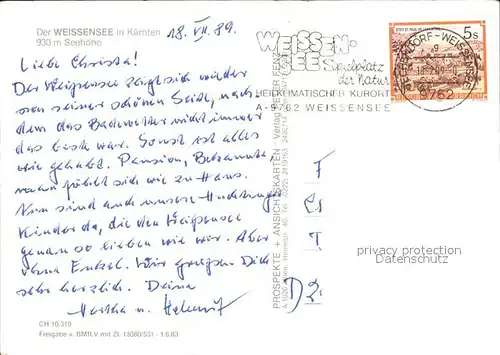 Der WEISSENSEE in Kärnten
930 m Seehöhe
18. VII. 89.
Liebe Christa!
Der Weißensee zeigt sich wieder
von seiner schönen Seite, nach
dem das Badewetter nicht immer
das beste war. Sonst ist alles
wie gehabt. Pension, Bekannte
man fühlt sich wie zu Haus.
Nun sind auch unsere
Kinder da, die den Weißensee
genau so lieben wie wir. Aber
ohne Enkel. Wir grüßen Dich
sehr herzlich. Deine
Martha u. Helmut
CH 10.310
Freigabe v. BMfLV mit Zl. 13080/531 - 1.6.83
WEISSEN-
SEE Spielplatz
der Natur
HEILKLIMATISCHER KURORT
A-9762 WEISSENSEE
5s
9762
PROSPEKTE + ANSICHTSKARTEN Verlag PETER FENZ
privacy protection
Datenschutz